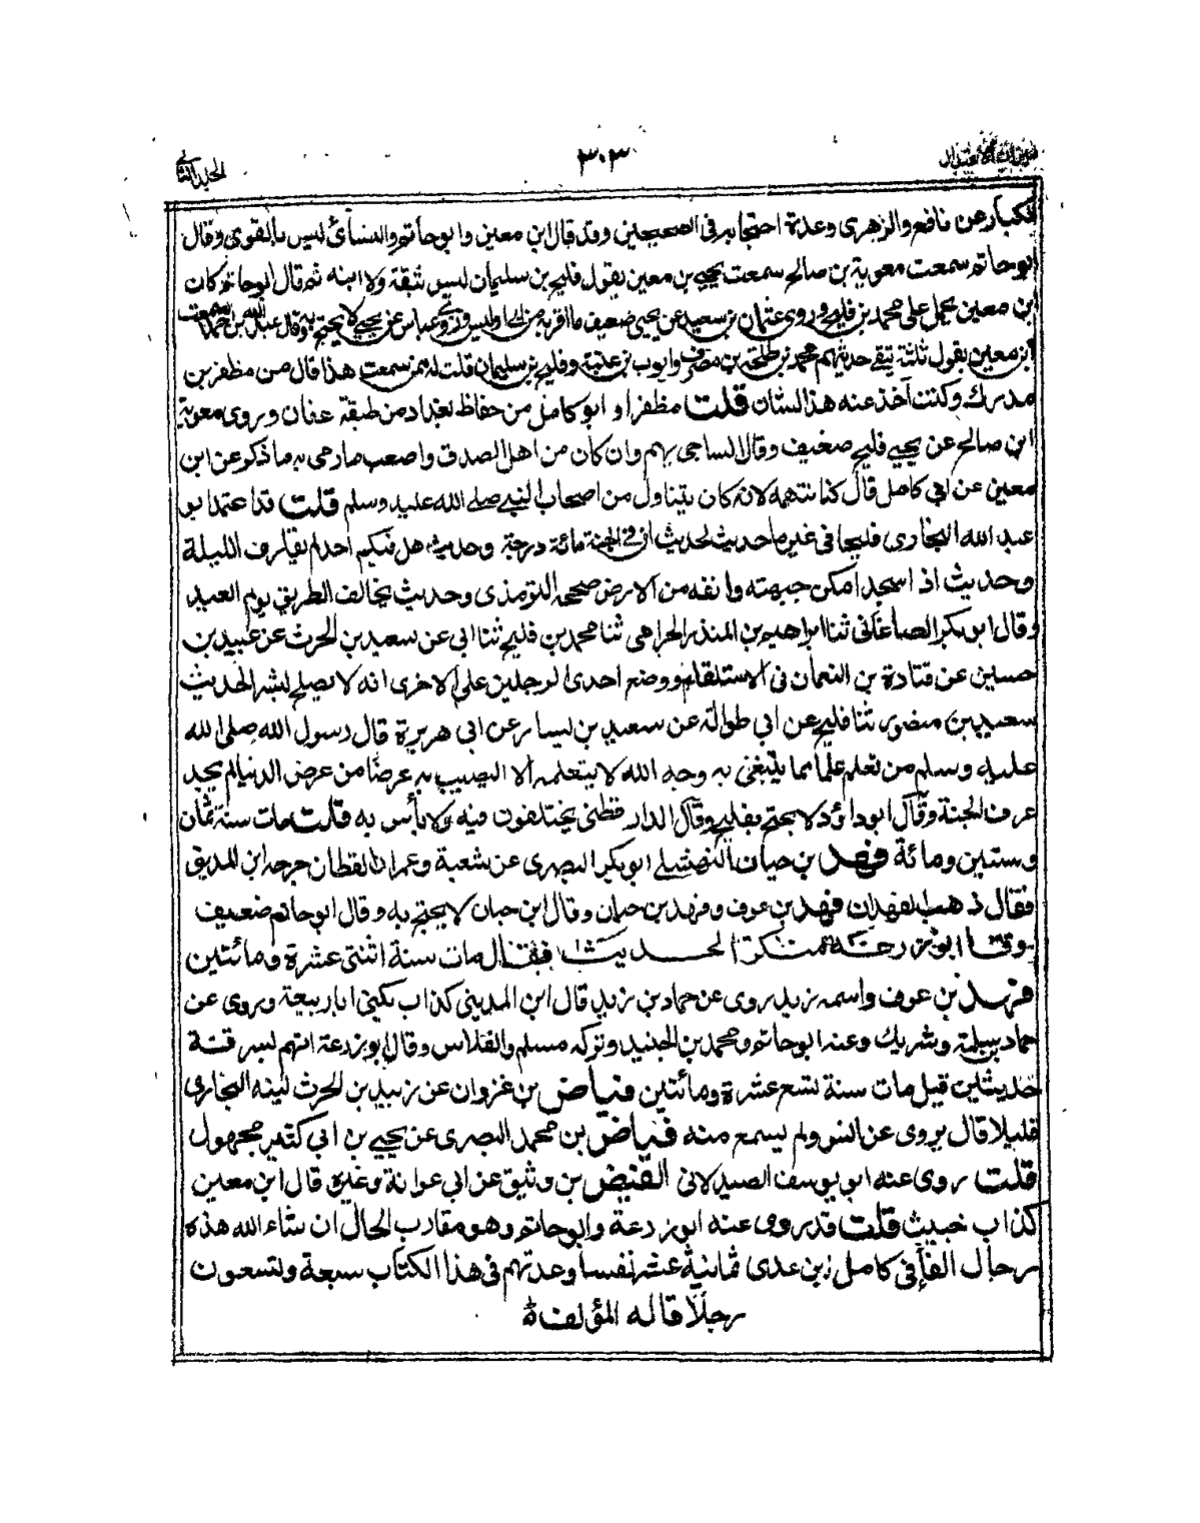 ميزان الاعتدال ٣٠٣ المجلد الثاني
الكبار عن نافع والزهرى وعدة احتجا به فى الصحيحين وقد قال ابن معين وابو حاتم والنسائى ليس بالقوى وقال
ابو حاتم سمعت معوية بن صالح سمعت يحيى بن معين يقول فليح بن سليمان ليس بثقة ولا ابنه ثم قال ابو حاتم كان
ابن معين يحمل على محمد بن فليح وروى عثمان بن سعيد عن يحيى ضعيف ما اقربه من ابى اويس وروى عباس عن يحيى لا يحتج به وقال عبد الله بن احمد سمعت
ابن معين يقول ثلثة يتقى حديثهم محمد بن طلحة بن مصرف وايوب بن عتبة وفليح بن سليمان قلت له ممن سمعت هذا قال من مظفر بن
مدرك وكنت آخذ عنه هذا الشان قلت مظفر او ابو كامل من حفاظ بغداد من طبقة عفان وروى معوية
ابن صالح عن يحيى فليح ضعيف وقال الساجى يهم وان كان من اهل الصدق واصعب ما رمى به ما ذكر عن ابن
معين عن ابى كامل قال كنا نتهمه لانه كان يتناول من اصحاب النبى صلى الله عليه وسلم قلت قد اعتمد ابو
عبد الله البخارى فليحا فى غير ما حديث لحديث ان فى الجنة مائة درجة وحديث هل فيكم احد لم يقارف الليلة
وحديث اذا سجد امكن جبهته وانفه من الارض صححه الترمذى وحديث يخالف الطريق يوم العيد
وقال ابو بكر الصاغانى ثنا ابراهيم بن المنذر الحزامى ثنا محمد بن فليح ثنا ابى عن سعيد بن الحرث عن عبيد بن
حسين عن قتادة بن النعمان فى الاستلقاء ووضع احدى الرجلين على الاخرى انه لا يصلح لبشر الحديث
سعيد بن منصور ثنا فليح عن ابى طوالة عن سعيد بن يسار عن ابى هريرة قال رسول الله صلى الله
عليه وسلم من تعلم علما مما يبتغى به وجه الله لا يتعلمه الا ليصيب به عرضا من عرض الدنيا لم يجد
عرف الجنة وقال ابو داؤد لا يحتج بفليح وقال الدارقطنى يختلفون فيه ولا بأس به قلت مات سنة ثمان
وستين ومائة فهد بن حيان النهشلى ابو بكر البصرى عن شعبة وعمران القطان جرحه ابن المدينى
فقال ذهب الفهدان فهد بن عوف وفهد بن حيان وقال ابن حبان لا يحتج به وقال ابو حاتم ضعيف
وقال ابو زرعة منكر الحديث فقال مات سنة اثنتى عشرة ومائتين
فهد بن عوف واسمه زيد يروى عن حماد بن زيد قال ابن المدينى كذاب يكنى ابا ربيعة ويروى عن
حماد بن سلمة وشريك وعنه ابو حاتم ومحمد بن الجنيد وتركه مسلم والفلاس وقال ابو زرعة اتهم لسرقة
حديثين قيل مات سنة تسع عشرة ومائتين فياض بن غزوان عن زبيد بن الحرث لينه البخارى
قليلا قال يروى عن انس ولم يسمع منه فياض بن محمد البصرى عن يحيى بن ابى كثير مجهول
قلت روى عنه ابو يوسف الصيدلانى الفيض بن وثيق عن ابى عوانة وغيره قال ابن معين
كذاب خبيث قلت قد روى عنه ابو زرعة وابو حاتم وهو مقارب الحال ان شاء الله هذه
رجال الفاء فى كامل ابن عدى ثمانية عشر نفسا وعدتهم فى هذا الكتاب سبعة وتسعون
رجلا قاله المؤلف